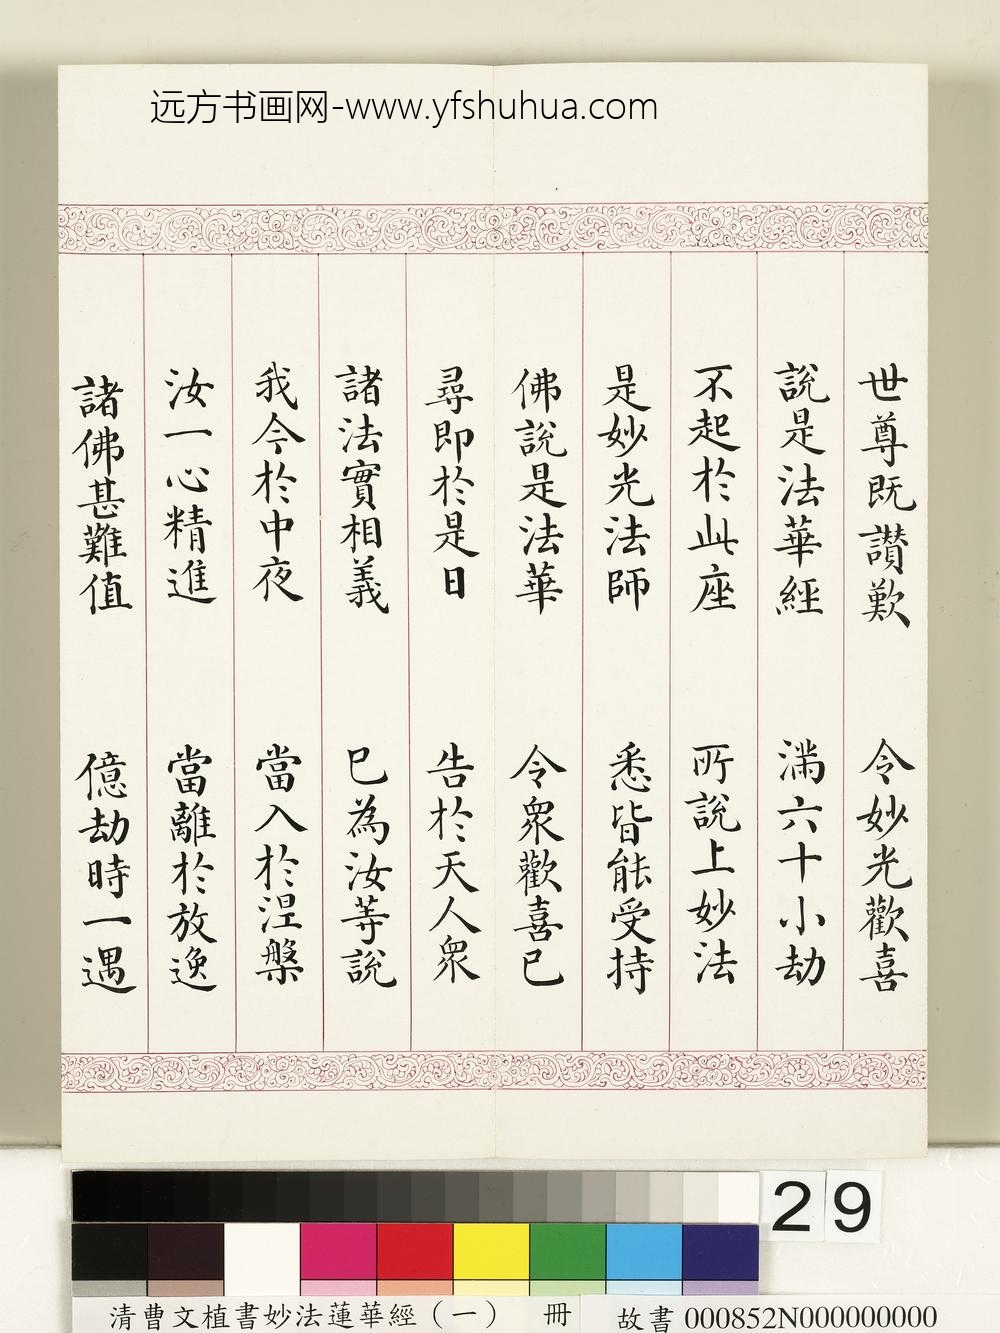 远方书画网-www.yfshuhua.com
世尊既讚歎 令妙光歡喜
說是法華經 滿六十小劫
不起於此座 所說上妙法
是妙光法師 悉皆能受持
佛說是法華 令衆歡喜已
尋即於是日 告於天人衆
諸法實相義 已為汝等說
我今於中夜 當入於涅槃
汝一心精進 當離於放逸
諸佛甚難值 億劫時一遇
29
清曹文植書妙法蓮華經（一） 冊 故書 000852N000000000